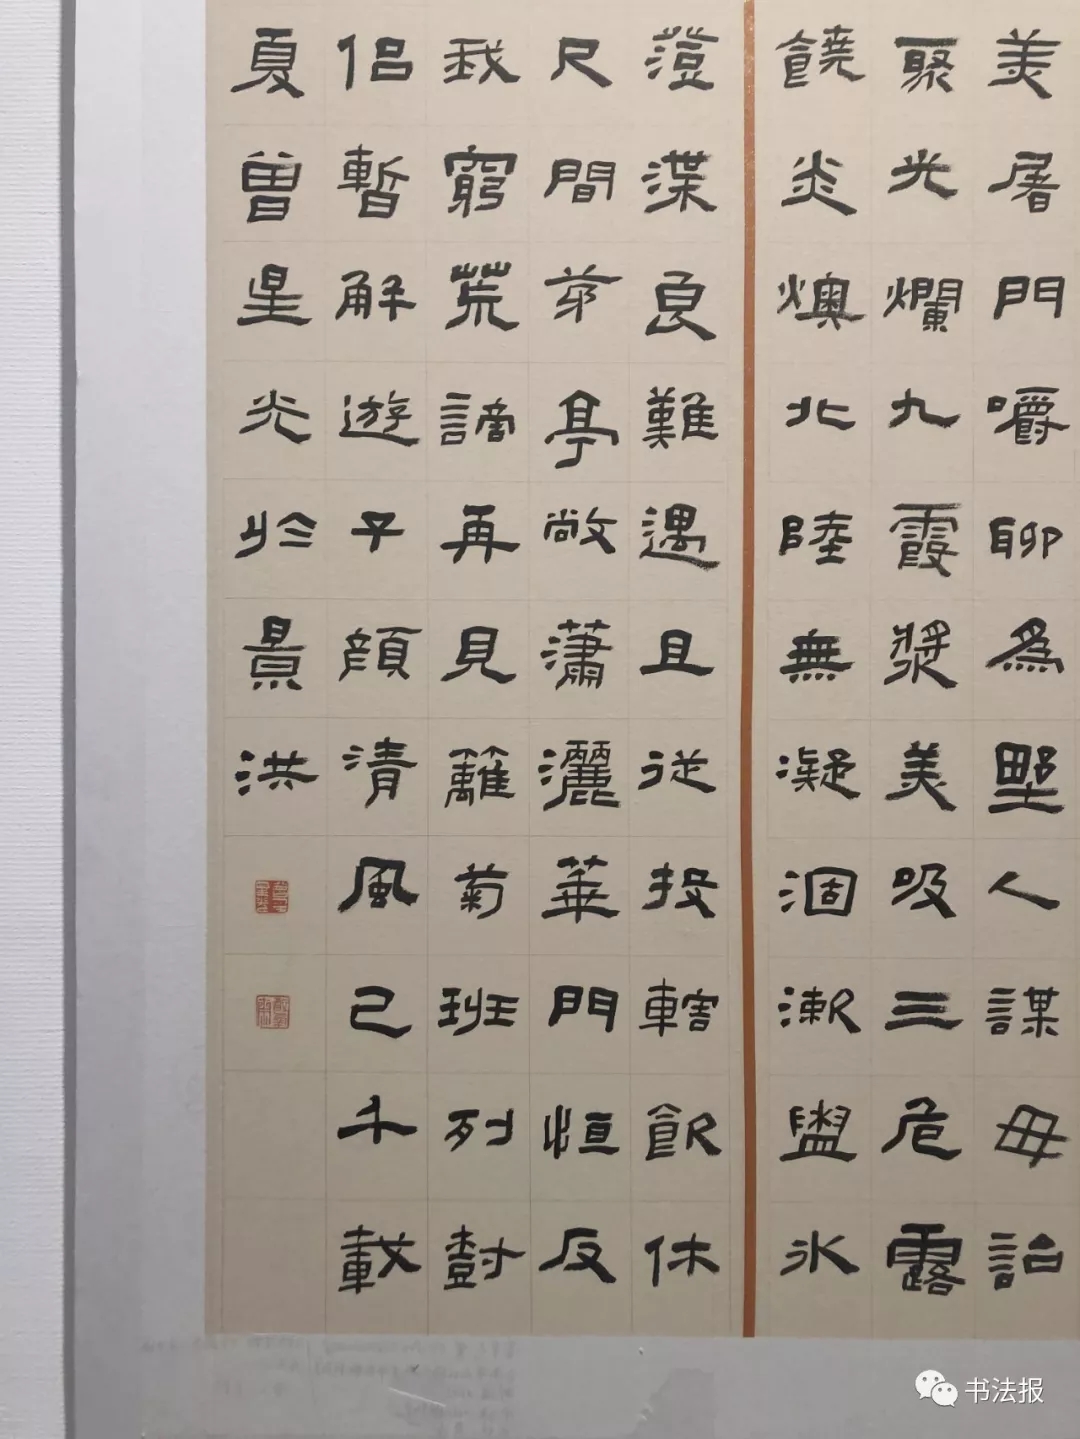 美屠門嚼聊為野人謀毋詒
聚光爛九霞漿美吸三危露
饒炎燠北陸無凝涸漱盥冰
澄渫良難遇且従投轄飲休
尺間茅亭敞瀟灑蓽門恒反
我窮荒謫再見籬菊班列封
侶暫解遊子顔清風已千載
夏曾星光於景洪
书法报